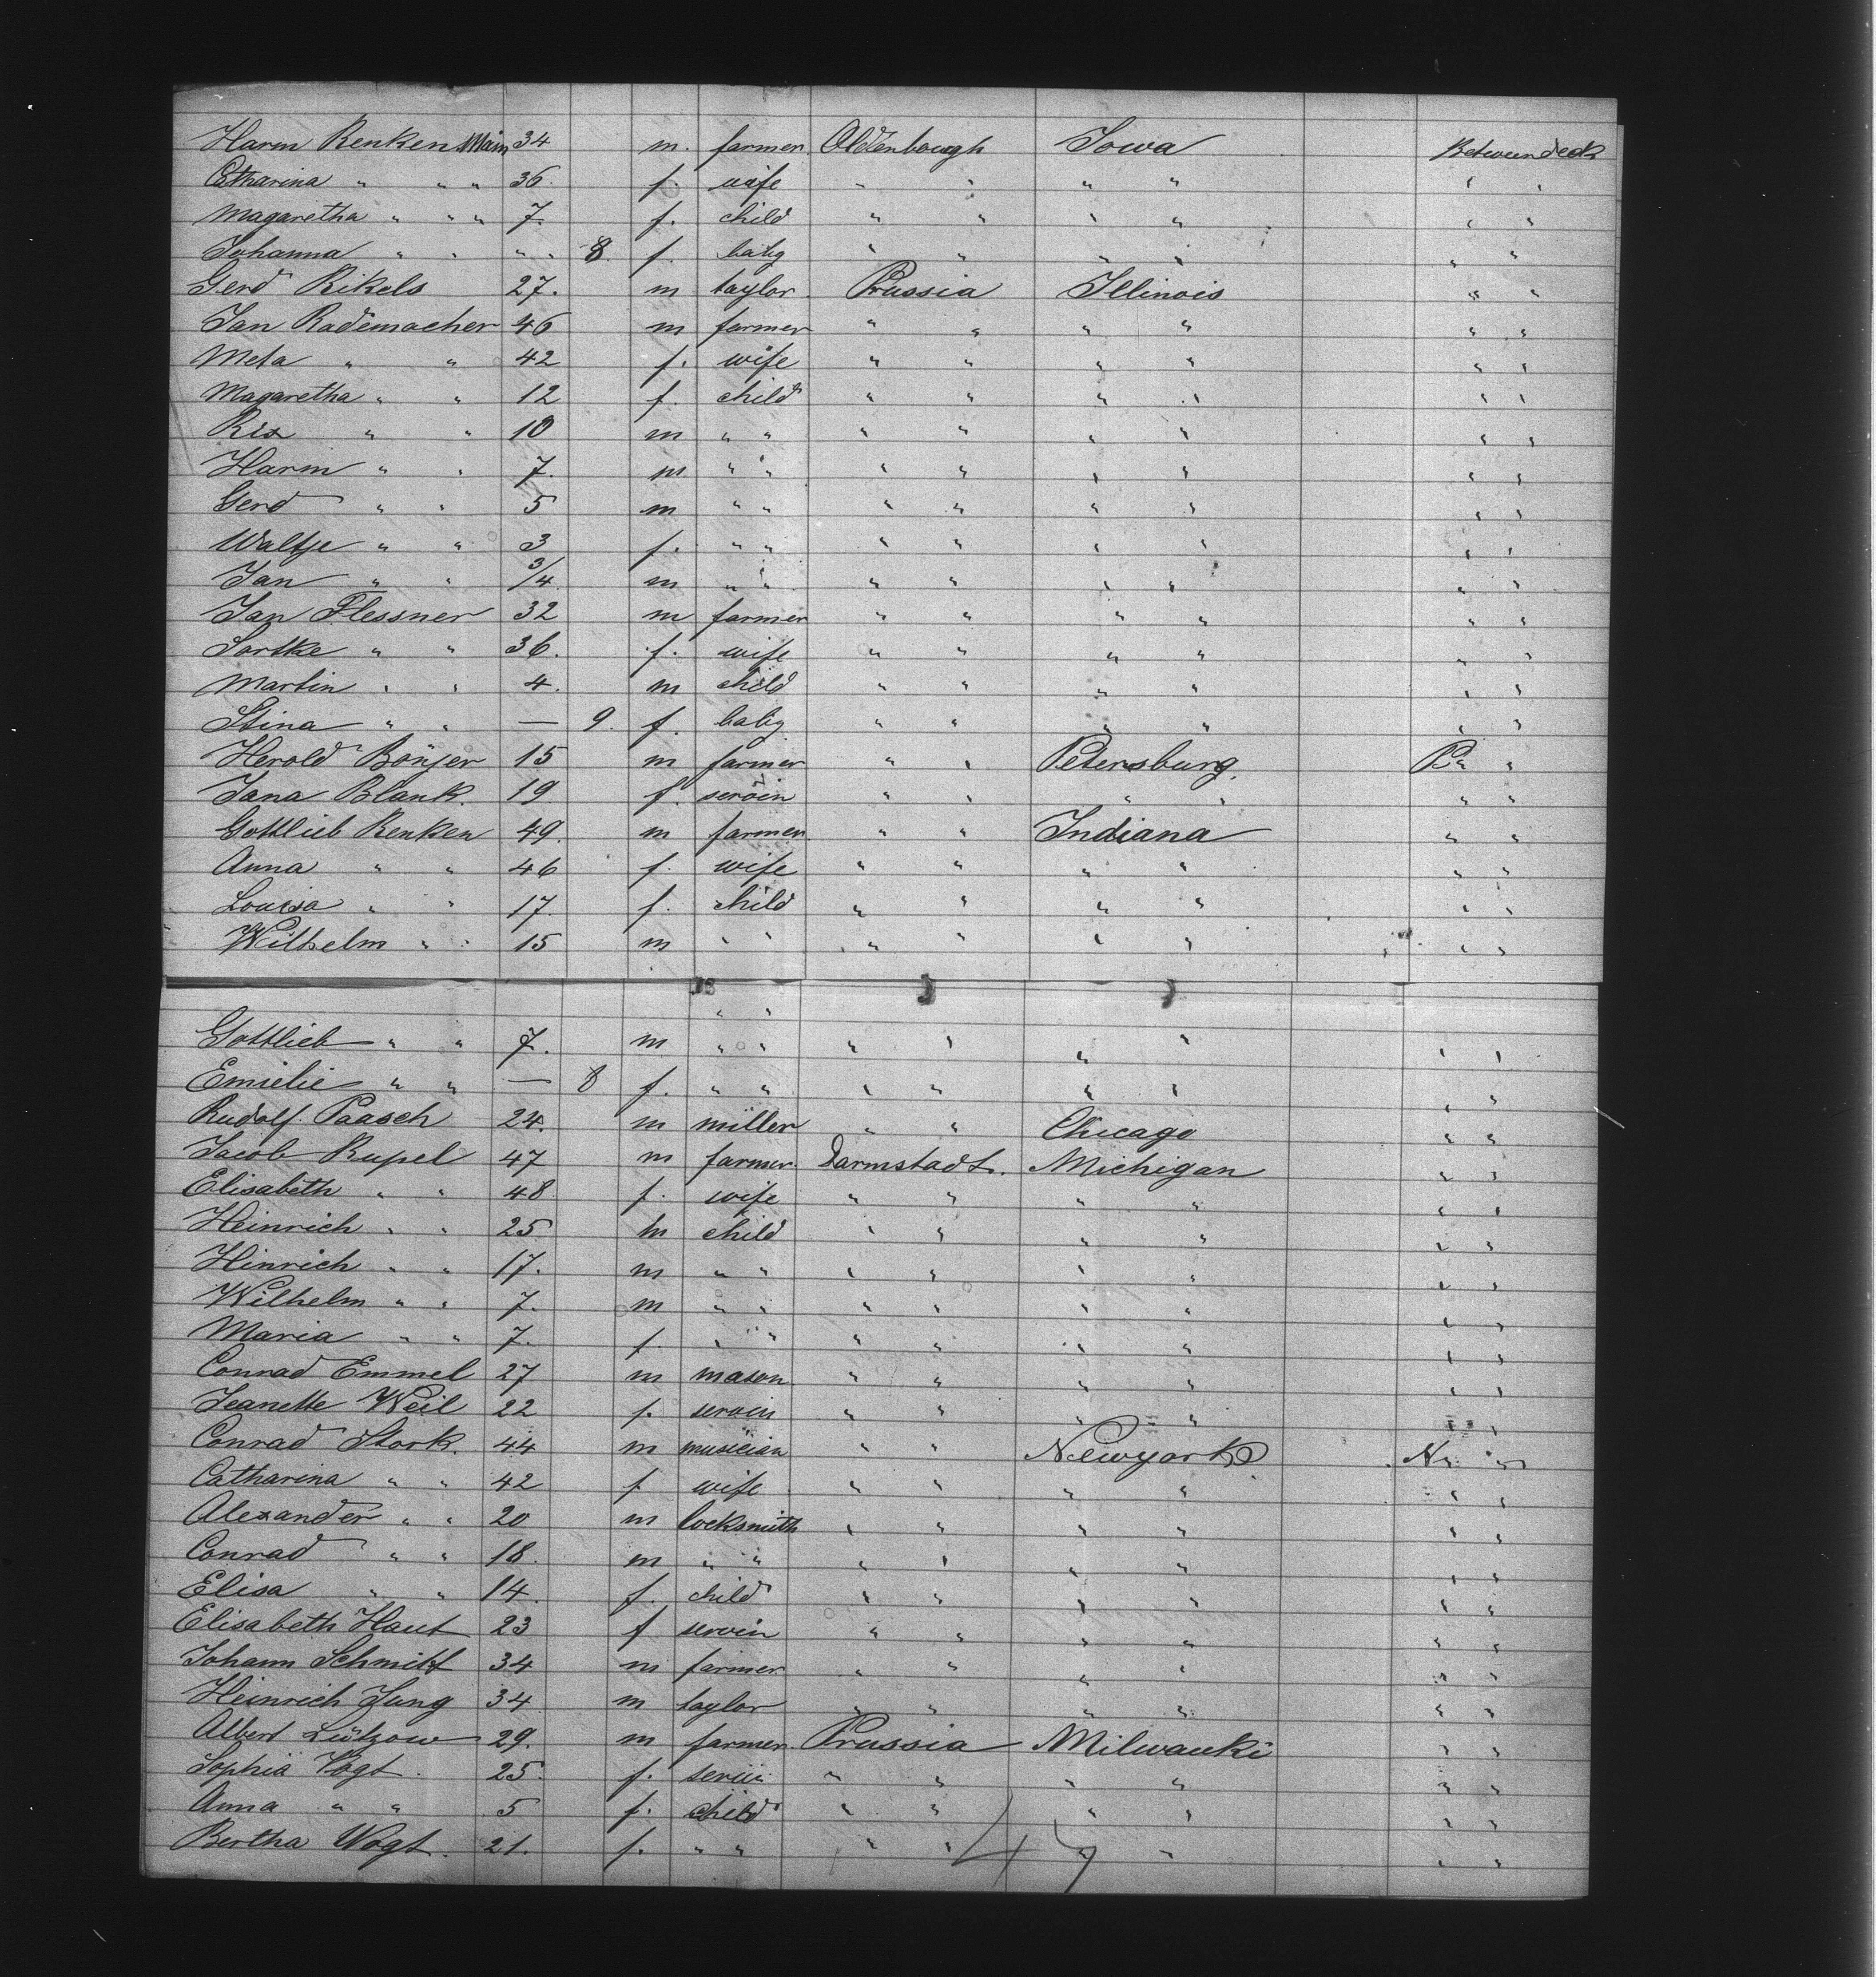 Harm Renken Mam 34 m. farmer Oldenbourgh Iowa Betweendeck
Catharina " " " 36. f. wife " " " " " "
Magaretha " " " 7. f. child " " " " " "
Johanna " " " " 8. f. baby " " " " " "
Gerd Rikels 27. m taylor Prussia Illinois " "
Jan Rademacher 46 m farmer " " " " " "
Meta " " 42 f. wife " " " " " "
Magaretha " " 12 f. child " " " " " "
Rix " " 10 m " " " " " " " "
Harm " " 7. m " " " " " " " "
Gerd " " 5 m " " " " " " " "
Waltje " " 3 f. " " " " " " " "
Jan " " 3/4 m " " " " " " " "
Jan Flessner 32 m farmer " " " " " "
Sartke " " 36. f. wife " " " " " "
Martin " " 4. m child " " " " " "
Stina " " — 9. f. baby " " " " " "
Herold Bönjer 15 m farmer " " Petersburg. P " "
Jana Blank. 19 f. servin " " " " " "
Gottlieb Renken 49. m farmer " " Indiana " "
Anna " " 46 f. wife " " " " " "
Louisa " " 17. f. child " " " " " "
Wilhelm " " 15 m " " " " " " " "
" "
Gottlieb " " 7. m " " " " " " " "
Emielie " " — 8 f. " " " " " " " "
Rudolf. Paasch 24. m miller " " Chicago " "
Jacob Rupel 47 m farmer. Darmstadt. Michigan " "
Elisabeth " " 48 f. wife " " " " " "
Heinrich " " 25 m child " " " " " "
Hinrich " " 17. m " " " " " " " "
Wilhelm " " 7. m " " " " " " " "
Maria " " 7. f. " " " " " " " "
Conrad Emmel 27 m mason " " " " " "
Jeanette Weil 22 f. servin " " " " " "
Conrad Stork. 44 m musician " " Newyork N " "
Catharina " " 42 f wife " " " " " "
Alexander " " 20 m locksmith " " " " " "
Conrad " " 18. m " " " " " " " "
Elisa " " 14. f. child " " " " " "
Elisabeth Haut 23 f servin " " " " " "
Johann Schmitt 34 m farmer " " " " " "
Heinrich Jung 34 m taylor " " " " " "
Albert Lützow 29. m farmer. Prussia Milwauki " "
Sophia Vogt. 25. f. servin " " " " " "
Anna " " 5 f. child " " " " " "
Bertha Wogt. 21. f. " " " " " " " "
47